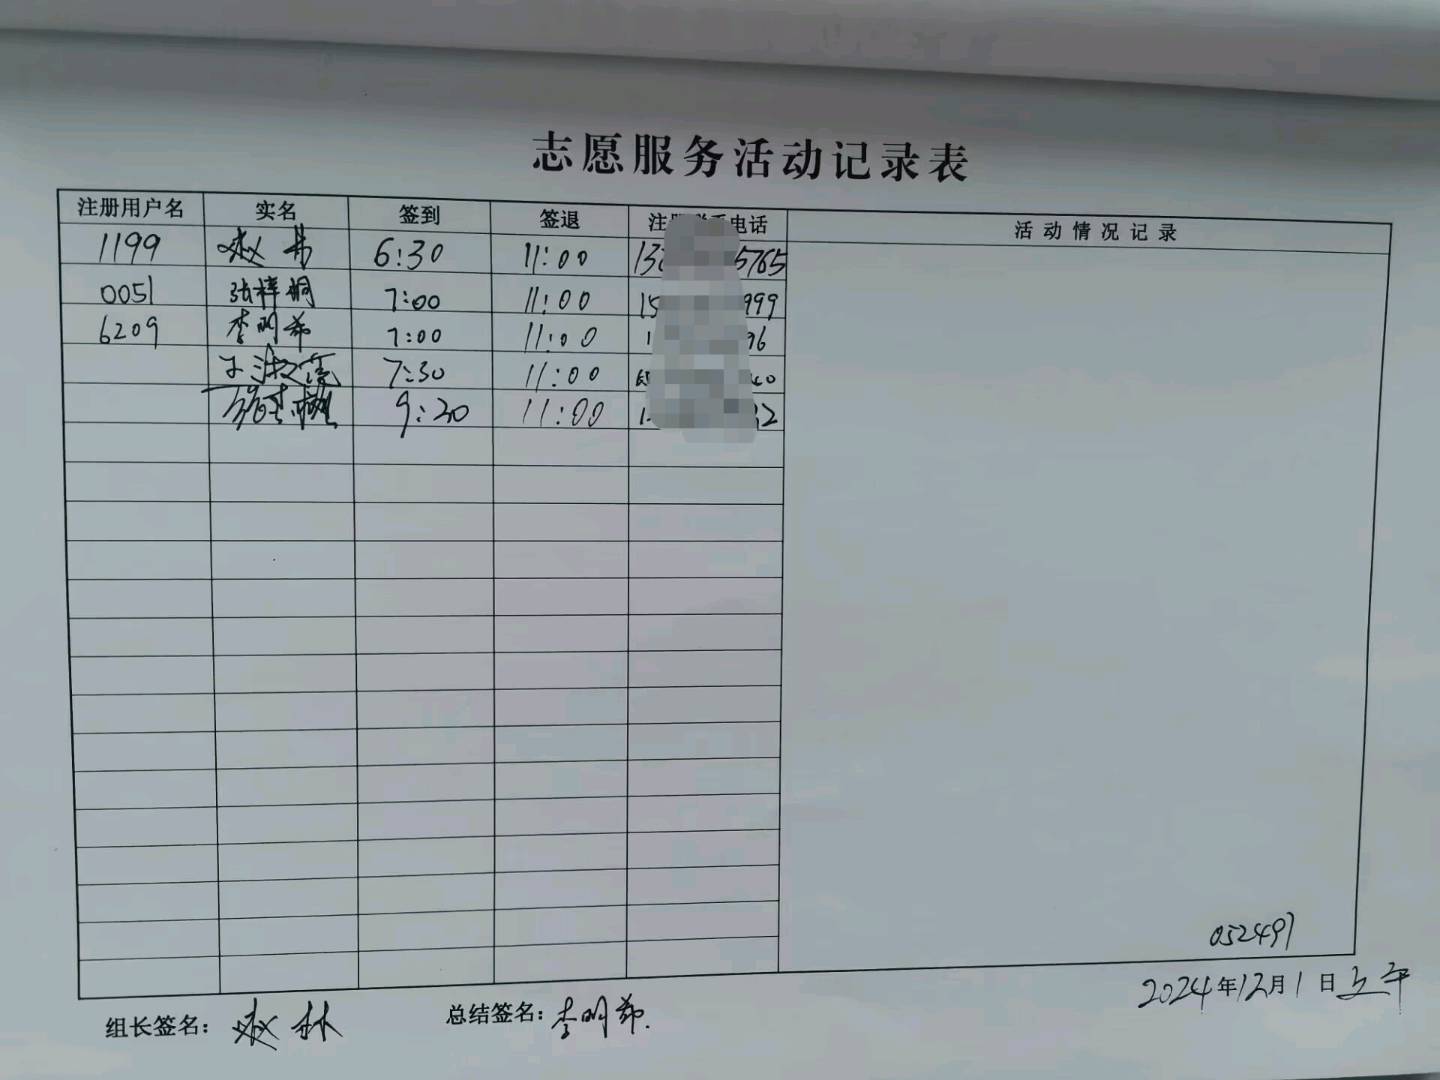 志愿服务活动记录表
注册用户名 实名 签到 签退 注册联系电话 活动情况记录
1199 赵 6:30 11:00 13 5765
0051 张梓桐 7:00 11:00 15 999
6209 李明 7:00 11:00 1 96
7:30 11:00 40
9:20 11:00 1 32
052497
2024年12月1日上午
组长签名：赵林
总结签名：李明